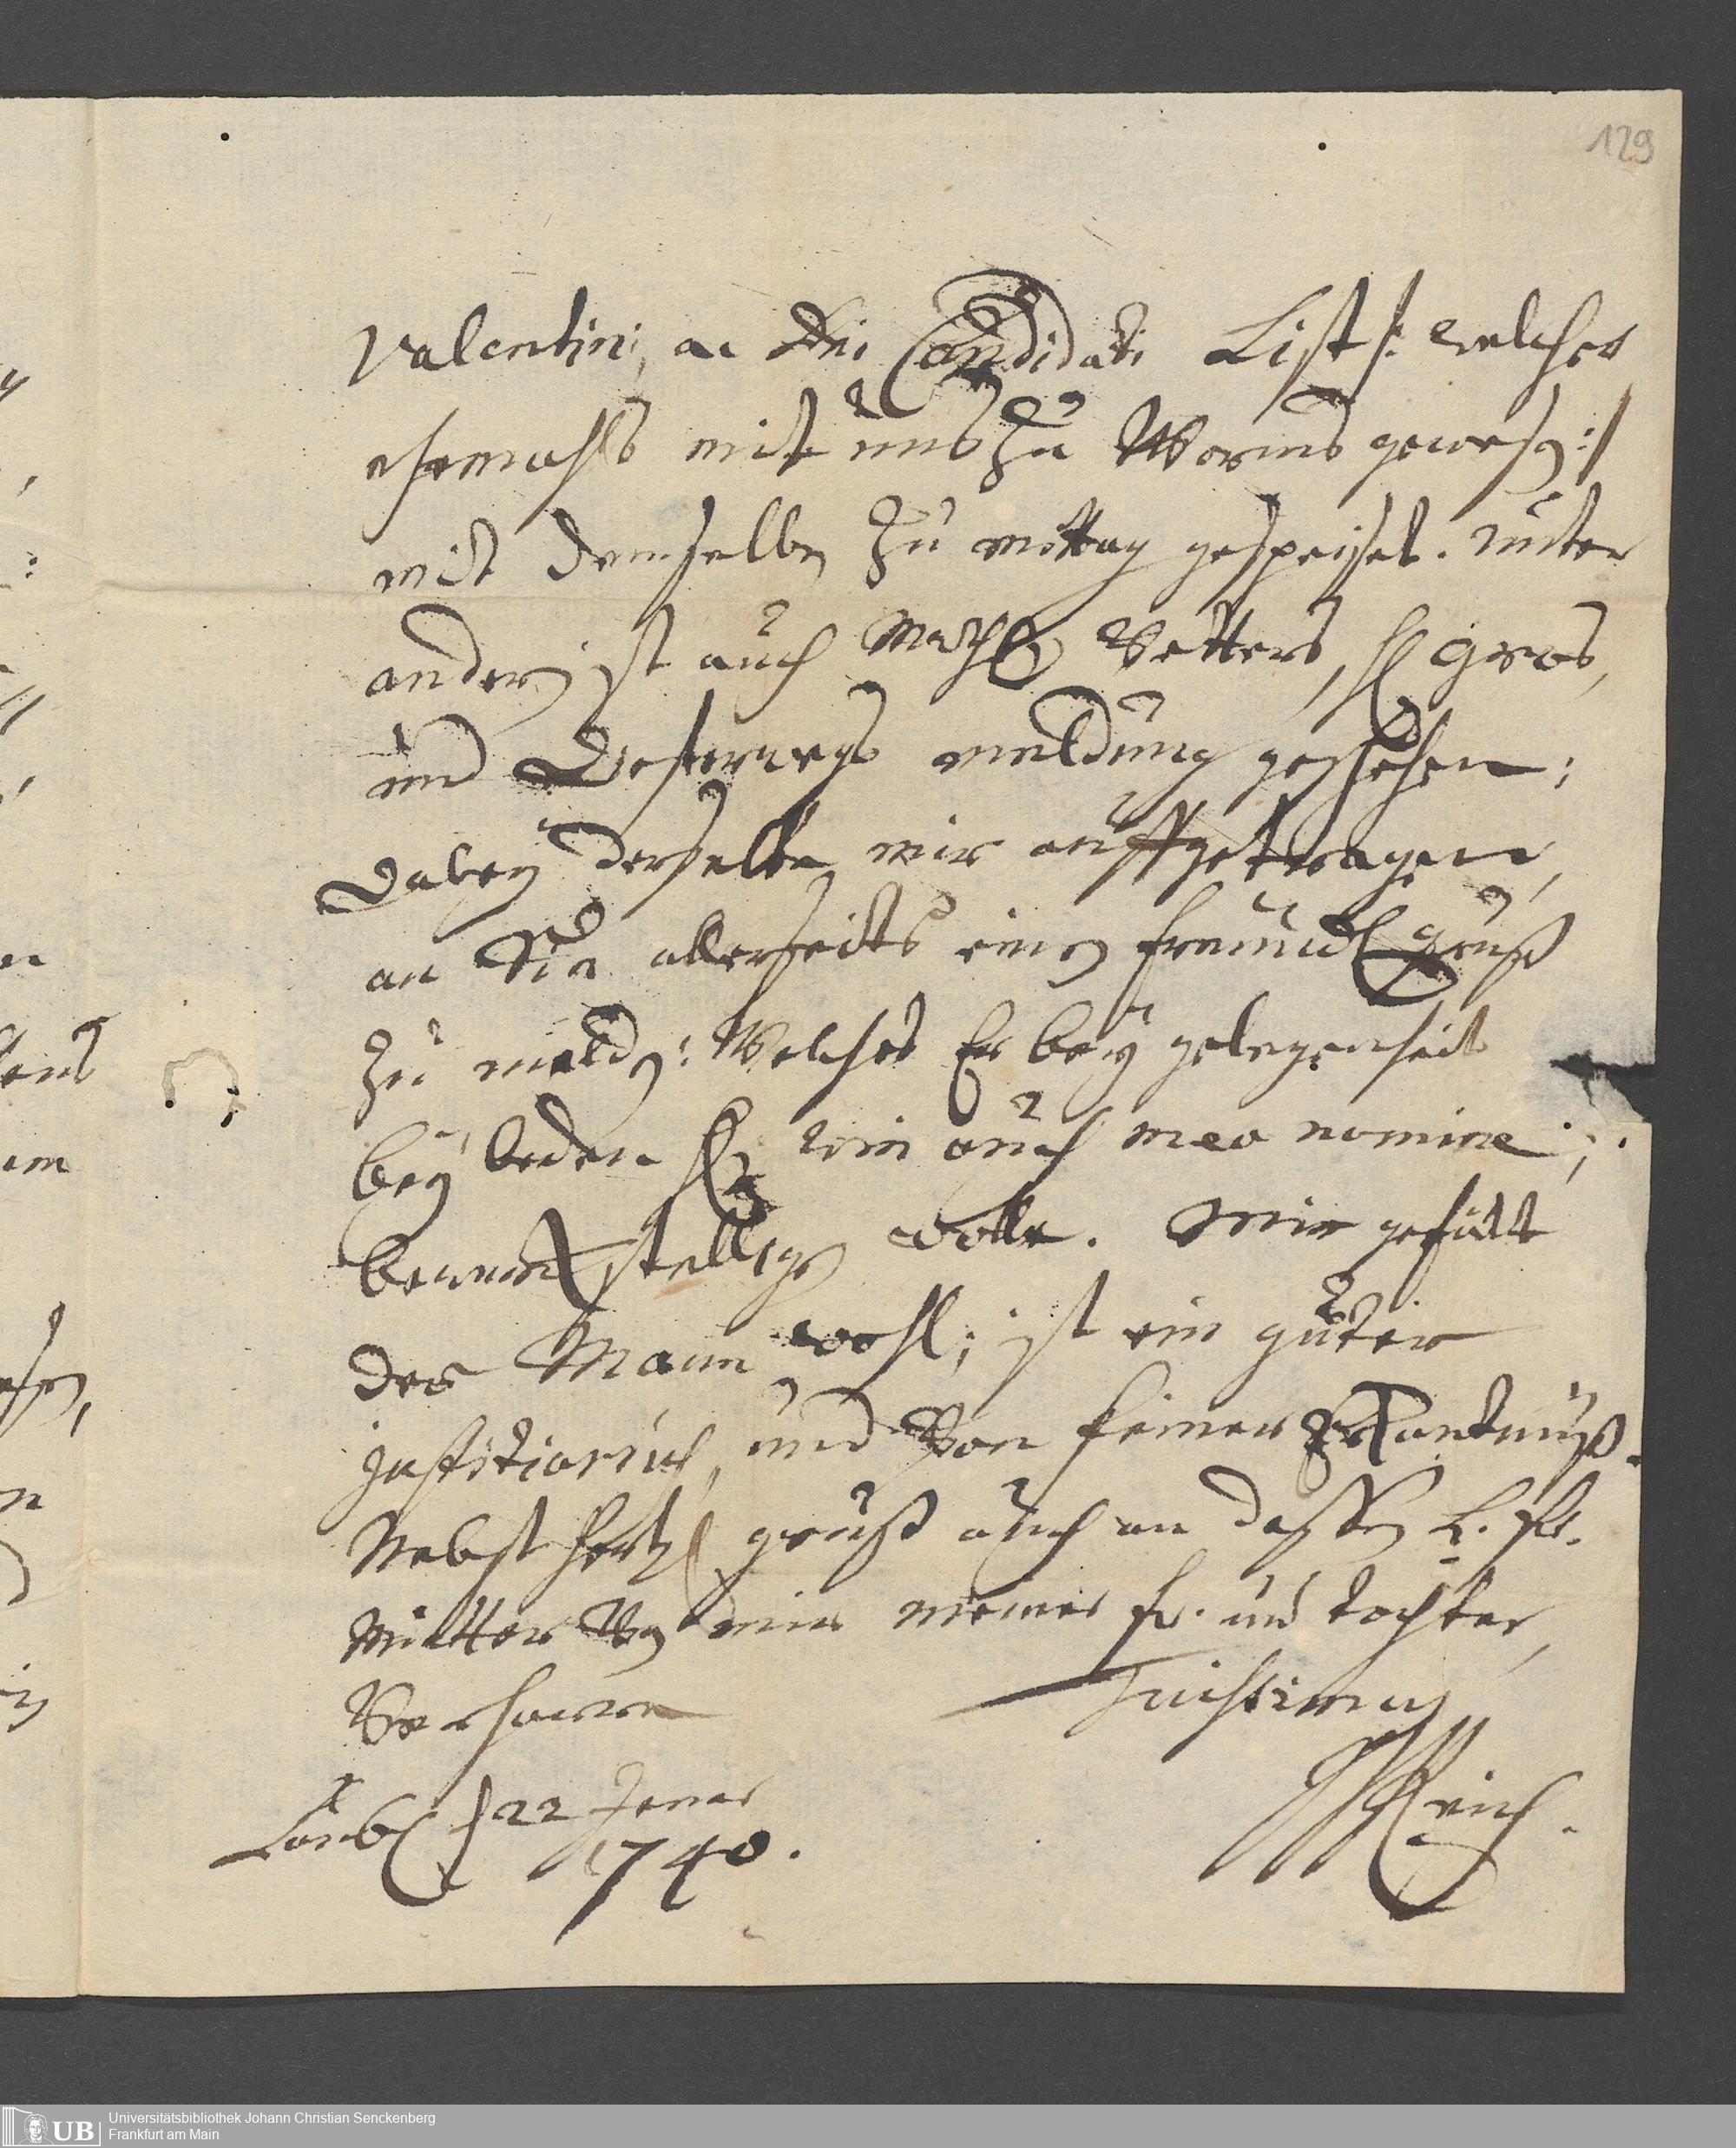 129
Valentini, ac Dni Candidati List /: welcher
ehemahls mit uns zu Worms geweßen :/
mit demselben zu mittag gespeißet. unter
andern ist auch Vetters, H. Gros,
und meldung geschehen;
dabey derselbe mir auffgetragen,
an Sie allerseits einen freundl. gruß
zu melden: Welches Er bey gelegenheit
bey beden H. wie auch meo nomine;
bewerckstelligen wolle. Mir gefällt
der Mann wohl; ist ein guter
justitiarius, und von feiner Erkantnuß.
Nebst hertzl. gruß auch an dessen L. Fr.
Mutter von mir meiner fr. und tochter,
Verharre
Laub. d. 22 Jenar
1740.
Reich.
UB
Universitätsbibliothek Johann Christian Senckenberg
Frankfurt am Main